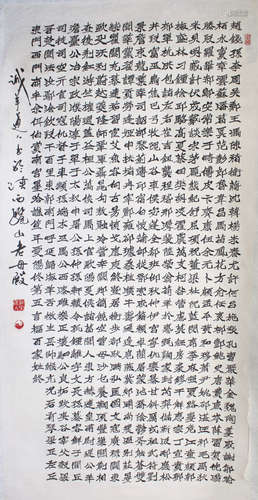 趙錢孫李周吳鄭王馮陳褚衛蔣沈韓楊朱秦尤許何呂施張孔曹嚴華金魏陶姜戚謝鄒喻
柏水竇章雲蘇潘葛奚范彭郎魯韋昌馬苗鳳花方俞任袁柳酆鮑史唐費廉岑薛雷賀倪湯
滕殷羅畢郝鄔安常樂于時傅皮卞齊康伍余元卜顧孟平黃和穆蕭尹姚邵湛汪祁毛禹狄
米貝明臧計伏成戴談宋茅龐熊紀舒屈項祝董梁杜阮藍閔席季麻強賈路婁危江童顏郭
梅盛林刁鍾徐邱駱高夏蔡田樊胡凌霍虞萬支柯昝管盧莫經房裘繆干解應宗丁宣賁鄧
郁單杭洪包諸左石崔吉鈕龔程嵇邢滑裴陸榮翁荀羊於惠甄麴家封芮羿儲靳汲邴糜松
井段富巫烏焦巴弓牧隗山谷車侯宓蓬全郗班仰秋仲伊宮寧仇欒暴甘鈄厲戎祖武符劉
景詹束龍葉幸司韶郜黎薊薄印宿白懷蒲邰從鄂索咸籍賴卓藺屠蒙池喬陰鬱胥能蒼雙
聞莘党翟譚貢勞逄姬申扶堵冉宰酈雍卻璩桑桂濮牛壽通邊扈燕冀郟浦尚農溫別莊晏
柴瞿閻充慕連茹習宦艾魚容向古易慎戈廖庾終暨居衡步都耿滿弘匡國文寇廣祿闕東
歐殳沃利蔚越夔隆師鞏厙聶晁勾敖融冷訾辛闞那簡饒空曾毋沙乜養鞠須豐巢關蒯相
查后荊紅游竺權逯蓋益桓公万俟司馬上官歐陽夏侯諸葛聞人東方赫連皇甫尉遲公羊
澹臺公冶宗政濮陽淳于單于太叔申屠公孫仲孫軒轅令狐鍾離宇文長孫慕容鮮于閭丘
司徒司空亓官司寇仉督子車顓孫端木巫馬公西漆雕樂正壤駟公良拓跋夾谷宰父穀梁
晉楚閆法汝鄢涂欽段干百里東郭南門呼延歸海羊舌微生岳帥緱亢況後有琴梁丘左丘
東門西門商牟佘佴伯賞南宮墨哈譙笪年愛陽佟第五言福百家姓終
誠羊道人書於陝西驪山老母殿